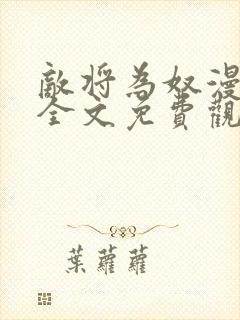 敵將為奴漫
全文免費觀
葉蘿蘿